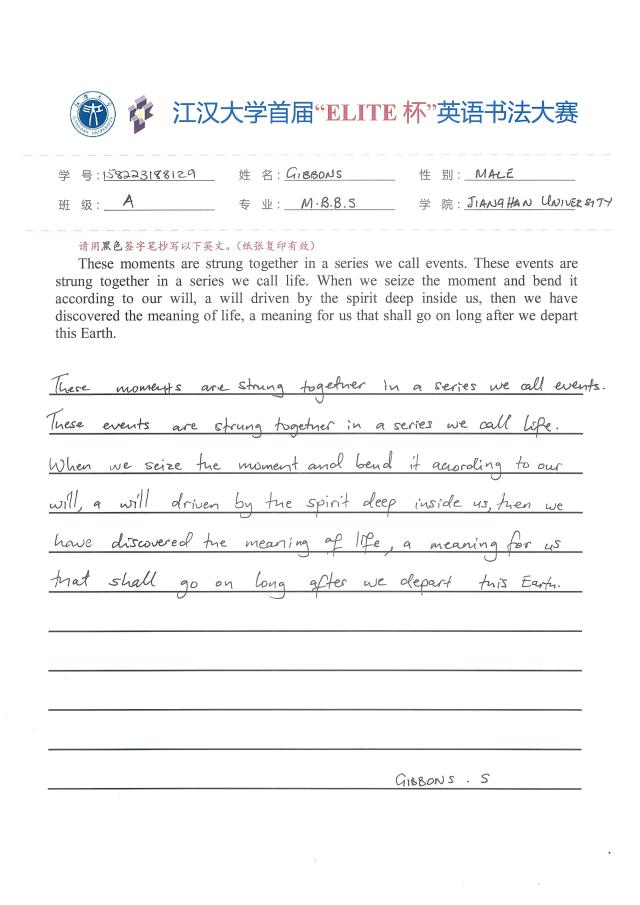 江汉大学首届“ELITE 杯”英语书法大赛
学 号: 158223188129 姓 名: GIBBONS 性 别: MALE
班 级: A 专 业: M.B.B.S 学 院: JIANGHAN UNIVERSITY
请用黑色签字笔抄写以下英文。(纸张复印有效)
These moments are strung together in a series we call events. These events are
strung together in a series we call life. When we seize the moment and bend it
according to our will, a will driven by the spirit deep inside us, then we have
discovered the meaning of life, a meaning for us that shall go on long after we depart
this Earth.
These moments are strung together in a series we call events.
These events are strung together in a series we call life.
When we seize the moment and bend it according to our
will, a will driven by the spirit deep inside us, then we
have discovered the meaning of life, a meaning for us
that shall go on long after we depart this Earth.
GIBBONS . S